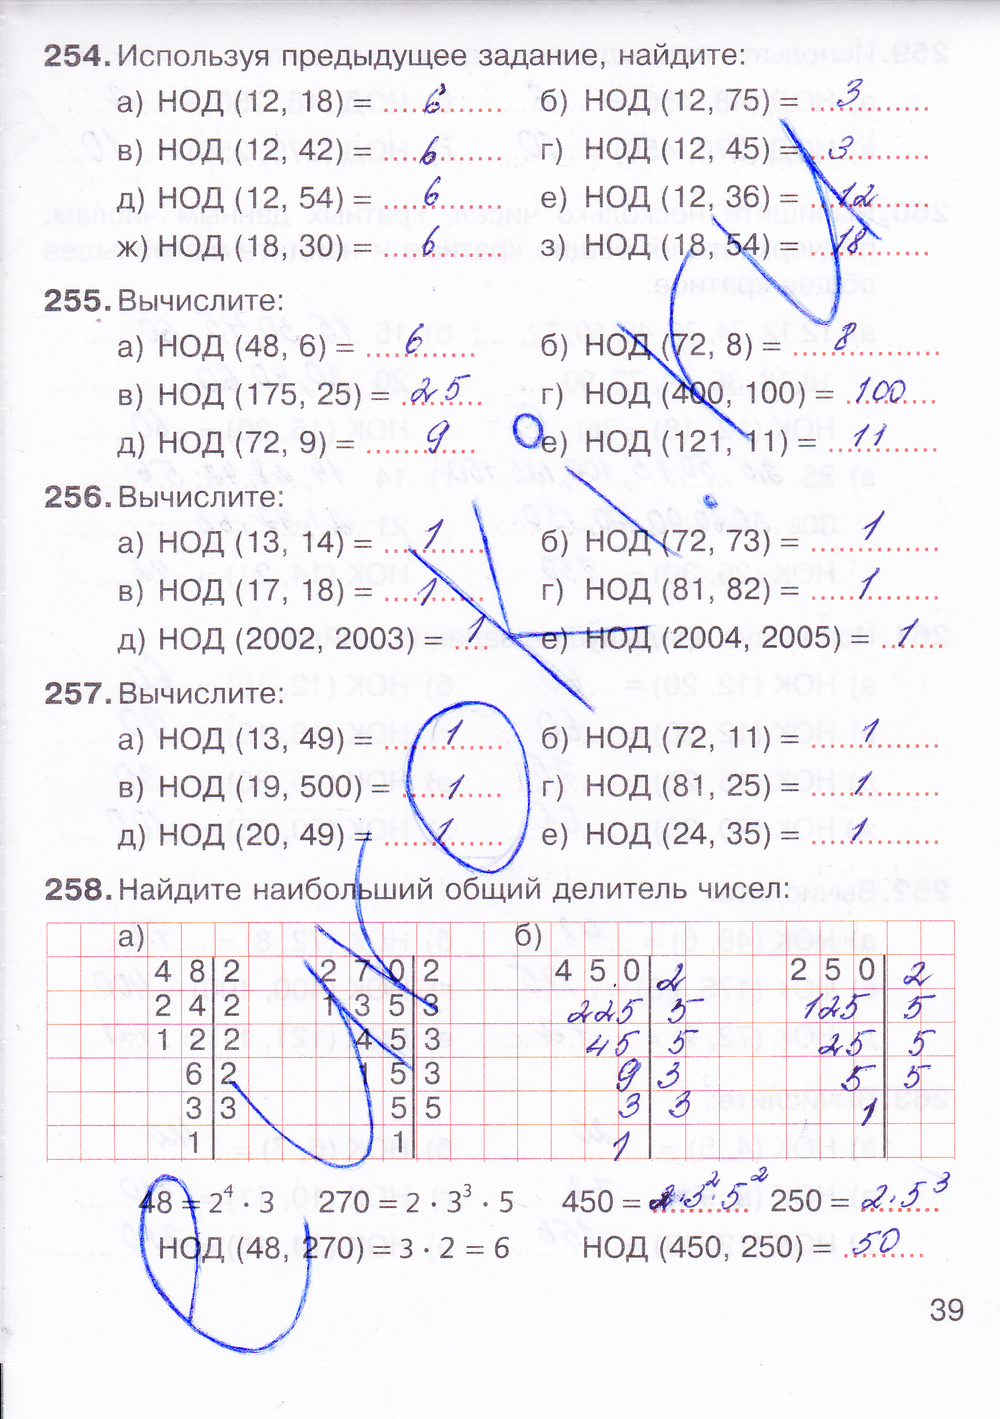 254. Используя предыдущее задание, найдите:
а) НОД (12, 18) = 6 б) НОД (12, 75) = 3
в) НОД (12, 42) = 6 г) НОД (12, 45) = 3
д) НОД (12, 54) = 6 е) НОД (12, 36) = 12
ж) НОД (18, 30) = 6 з) НОД (18, 54) = 18
255. Вычислите:
а) НОД (48, 6) = 6 б) НОД (72, 8) = 8
в) НОД (175, 25) = 25 г) НОД (400, 100) = 100
д) НОД (72, 9) = 9 е) НОД (121, 11) = 11
256. Вычислите:
а) НОД (13, 14) = 1 б) НОД (72, 73) = 1
в) НОД (17, 18) = 1 г) НОД (81, 82) = 1
д) НОД (2002, 2003) = 1 е) НОД (2004, 2005) = 1
257. Вычислите:
а) НОД (13, 49) = 1 б) НОД (72, 11) = 1
в) НОД (19, 500) = 1 г) НОД (81, 25) = 1
д) НОД (20, 49) = 1 е) НОД (24, 35) = 1
258. Найдите наибольший общий делитель чисел:
а) б)
48 2 270 2 450 2 250 2
24 2 135 3 225 5 125 5
12 2 45 3 45 5 25 5
6 2 15 3 9 3 5 5
3 3 5 5 3 3 1
1 1 1
48 = 2⁴ · 3 270 = 2 · 3³ · 5 450 = 2·3²5² 250 = 2·5³
НОД (48, 270) = 3 · 2 = 6 НОД (450, 250) = 50
39